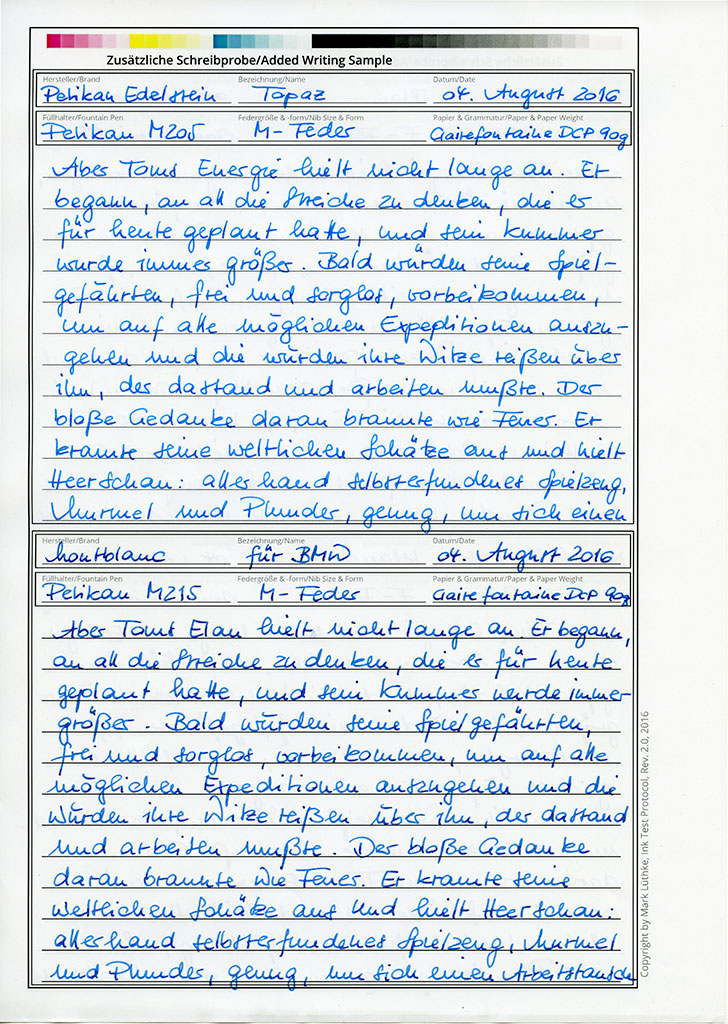 Zusätzliche Schreibprobe/Added Writing Sample
Hersteller/Brand Bezeichnung/Name Datum/Date
Pelikan Edelstein Topaz 04. August 2016
Füllhalter/Fountain Pen Federgröße & -form/Nib Size & Form Papier & Grammatur/Paper & Paper Weight
Pelikan M205 M-Feder Clairefontaine DCP 90g
Aber Toms Energie hielt nicht lange an. Er
begann, an all die Streiche zu denken, die er
für heute geplant hatte, und sein Kummer
wurde immer größer. Bald würden seine Spiel-
gefährten, frei und sorglos, vorbeikommen,
um auf alle möglichen Expeditionen auszu-
gehen und die würden ihre Witze reißen über
ihn, der dastand und arbeiten mußte. Der
bloße Gedanke daran brannte wie Feuer. Er
kramte seine weltlichen Schätze aus und hielt
Heerschau: allerhand selbsterfundenes Spielzeug,
Murmel und Plunder, genug, um sich einen
Hersteller/Brand Bezeichnung/Name Datum/Date
Montblanc für BMW 04. August 2016
Füllhalter/Fountain Pen Federgröße & -form/Nib Size & Form Papier & Grammatur/Paper & Paper Weight
Pelikan M215 M-Feder Clairefontaine DCP 90g
Aber Toms Elan hielt nicht lange an. Er begann,
an all die Streiche zu denken, die er für heute
geplant hatte, und sein Kummer wurde immer
größer. Bald würden seine Spielgefährten,
frei und sorglos, vorbeikommen, um auf alle
möglichen Expeditionen auszugehen und die
würden ihre Witze reißen über ihn, der dastand
und arbeiten mußte. Der bloße Gedanke
daran brannte wie Feuer. Er kramte seine
weltlichen Schätze aus und hielt Heerschau:
allerhand selbsterfundenes Spielzeug, Murmel
und Plunder, genug, um sich einen Arbeitstausch
Copyright by Mark Lüthke, Ink Test Protocol, Rev. 2.0, 2016